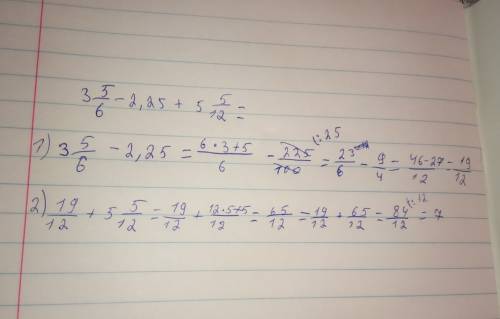 3 5/6 - 2,25 + 5 5/12 =
1) 3 5/6 - 2,25 = 6·3+5/6 - 225/100 = 23/6 - 9/4 = 46-27/12 = 19/12
(:25
2) 19/12 + 5 5/12 = 19/12 + 12·5+5/12 = 65/12 = 19/12 + 65/12 = 84/12 = 7
(:12